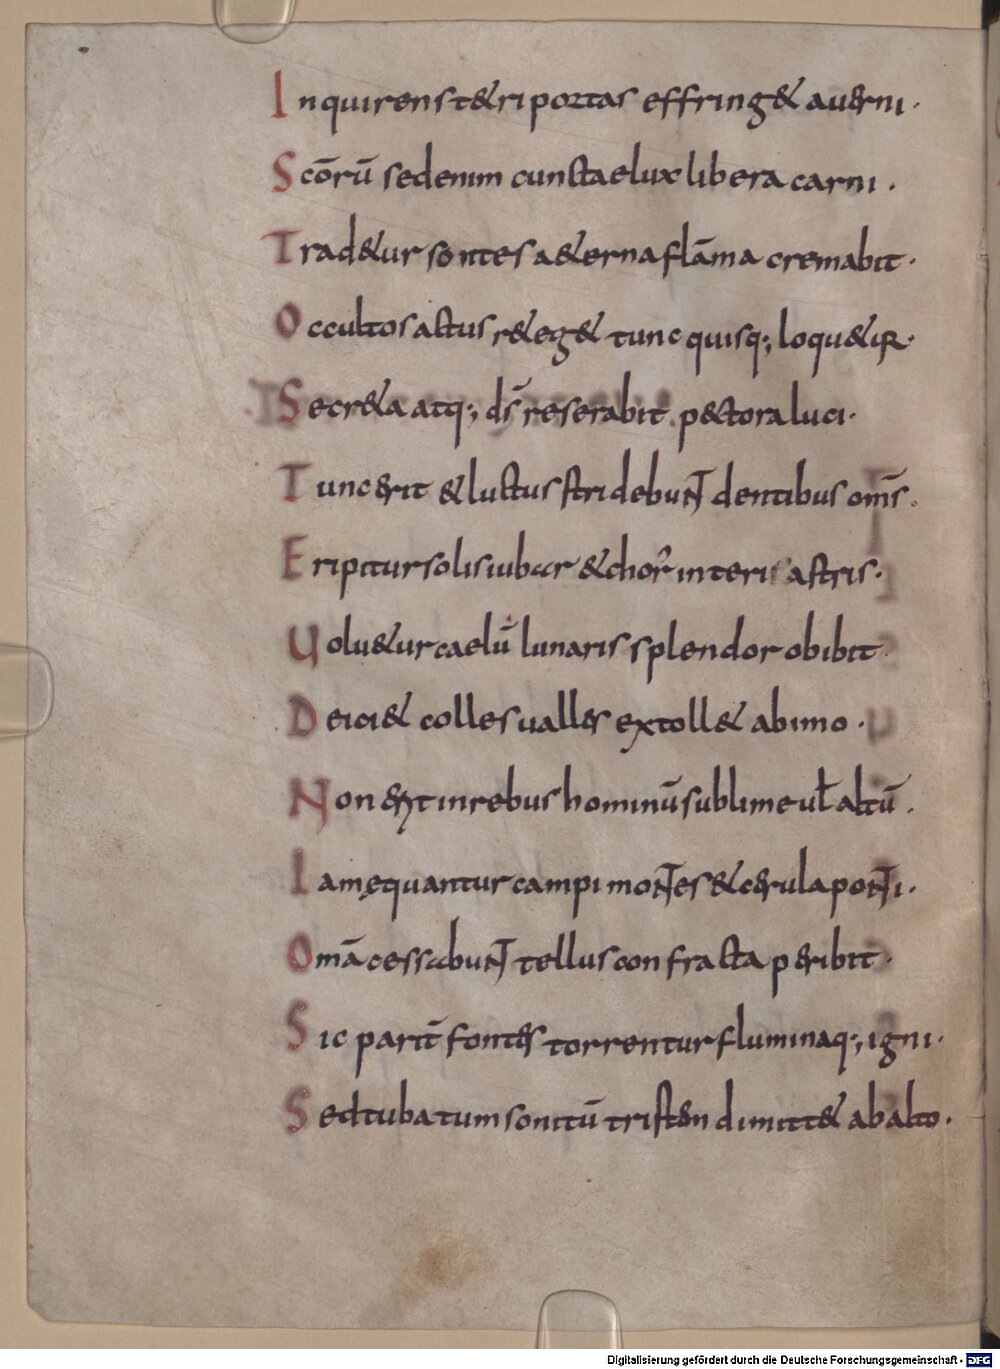 Inquirens t&ri portas effring& auerni·
Scōrū sedenim cunctae lux libera carni·
Trad&ur sontes a&erna flāma cremabit·
Occultos actus r&eg& tunc quisq; loqu&ur·
Secr&a atq; ds̄ reserabit pectora luci·
Tunc erit & luctus stridebunt dentibus om̄s·
Eripitur solis iubar & chor' interi astris·
Uolu&ur caelū lunaris splendor obibit
Deici& colles ualles extoll& ab imo·
Non erit in rebus hominū sublime uł altū·
Iam ęquantur campi montes & cerula ponti·
Omā cessabunt tellus confracta peribit·
Sic parit̄ fontes torrentur fluminaq; igni·
Sed tuba tum sonitū tristen dimitt& ab alto·
Digitalisierung gefördert durch die Deutsche Forschungsgemeinschaft - DFG